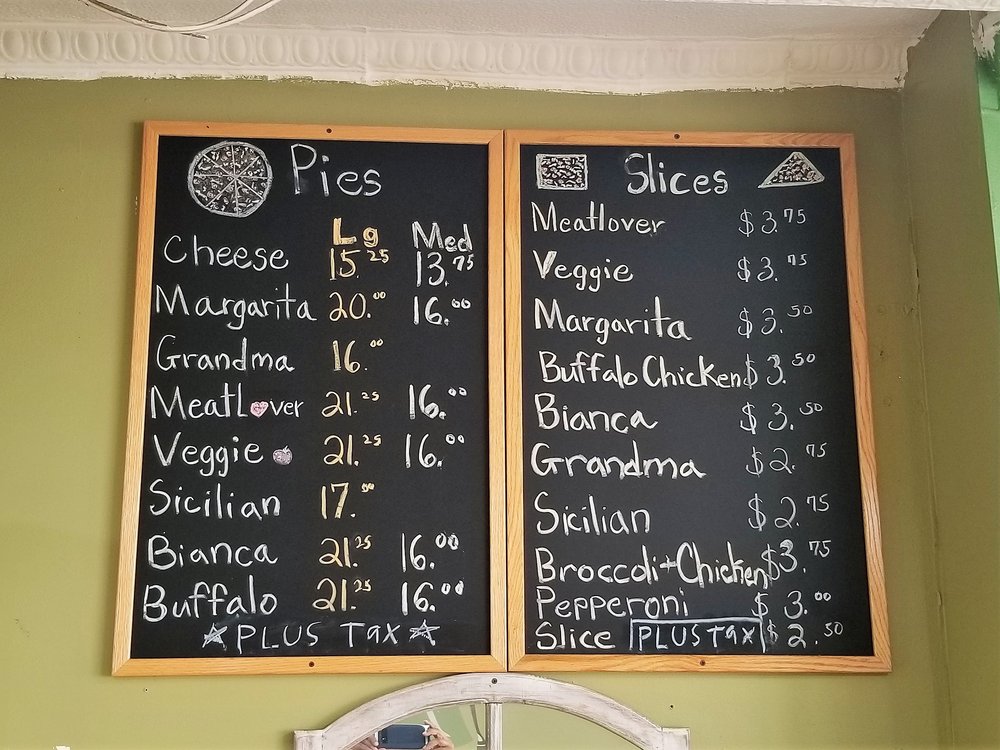 Pies
Lg Med
Cheese 15.25 13.75
Margarita 20.00 16.00
Grandma 16.00
MeatLover 21.25 16.00
Veggie 21.25 16.00
Sicilian 17.50
Bianca 21.25 16.00
Buffalo 21.25 16.00
PLUS Tax
Slices
Meatlover $3.75
Veggie $3.75
Margarita $3.50
Buffalo Chicken $3.50
Bianca $3.50
Grandma $2.75
Sicilian $2.75
Broccoli+Chicken $3.75
Pepperoni $3.00
Slice PLUS Tax $2.50